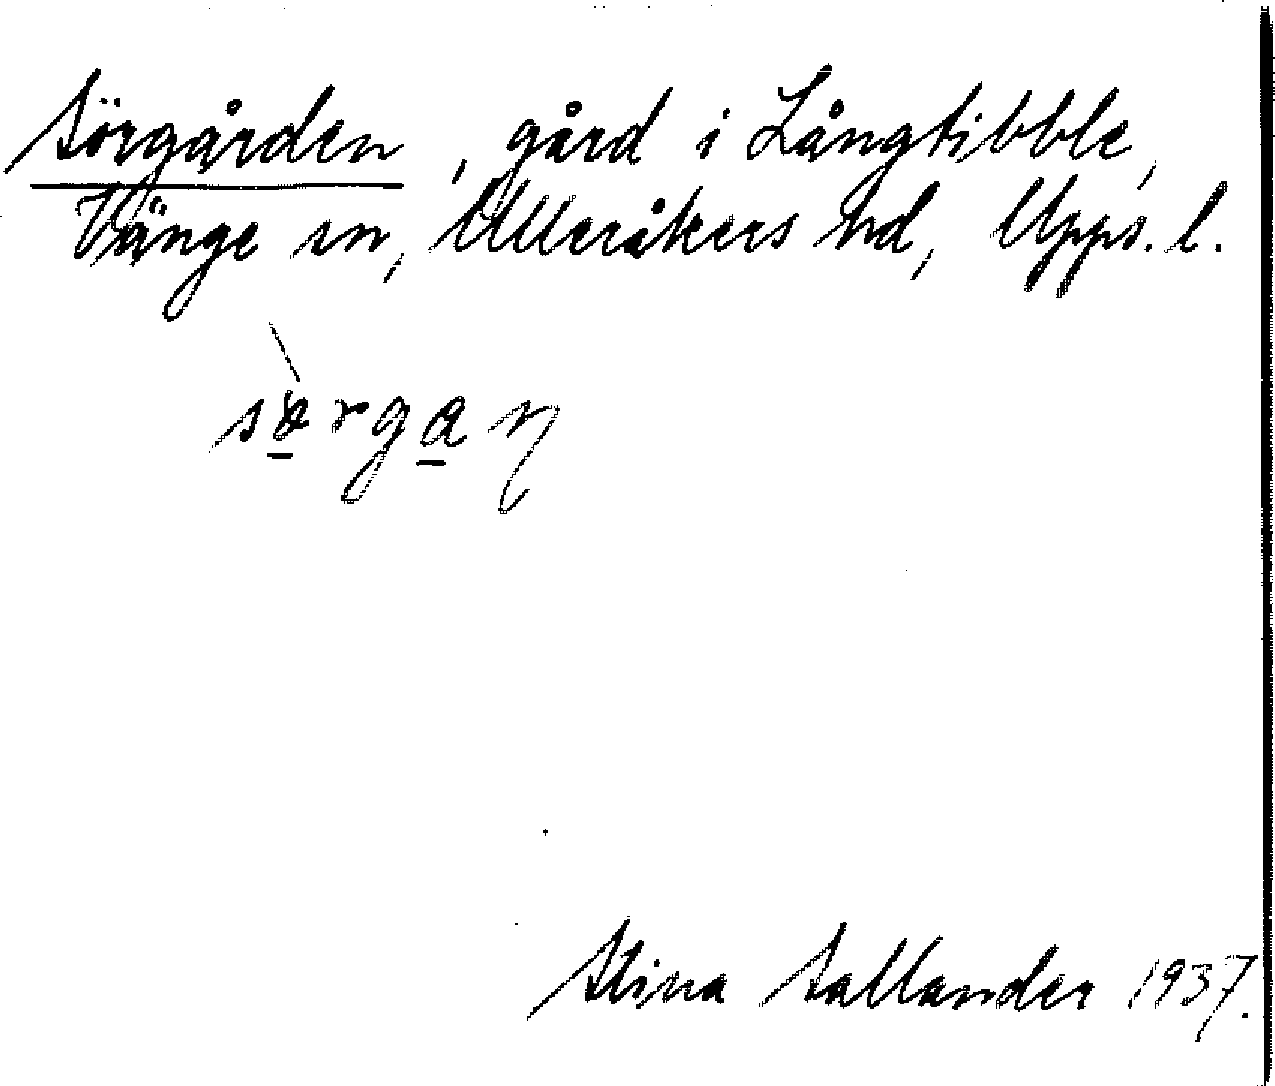 Sörgården, gård i Långtibble,
Vänge sn, Ulleråkers hd, Upps. l.
Stina Sallander 1937.